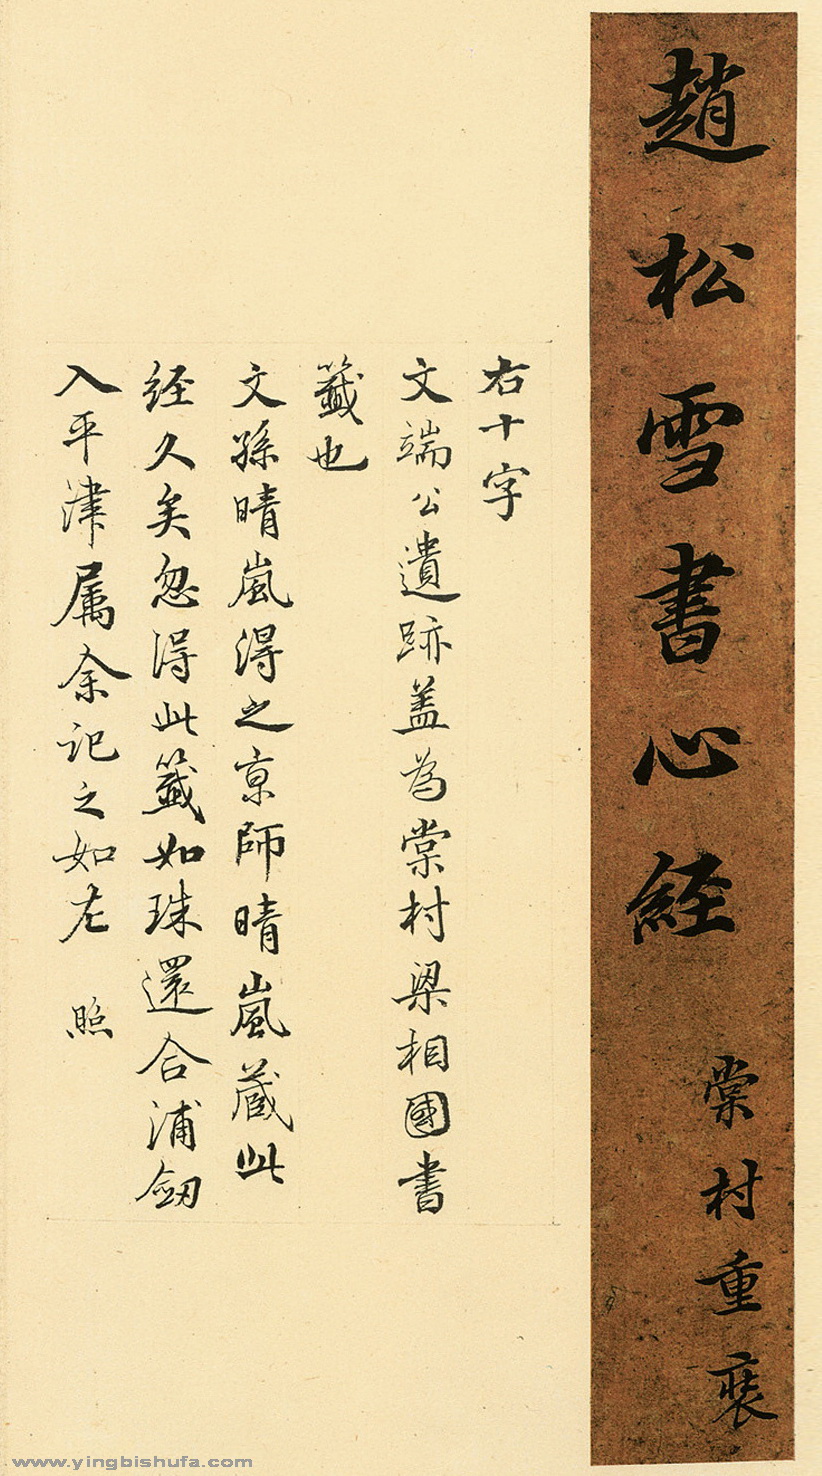 趙松雪書心経
棠村重裝
右十字
文端公遺跡蓋為棠村梁相國書
籤也
文孫晴嵐得之京師晴嵐蔵此
経久矣忽得此籤如珠還合浦劔
入平津属余記之如左 照
www.yingbishufa.com